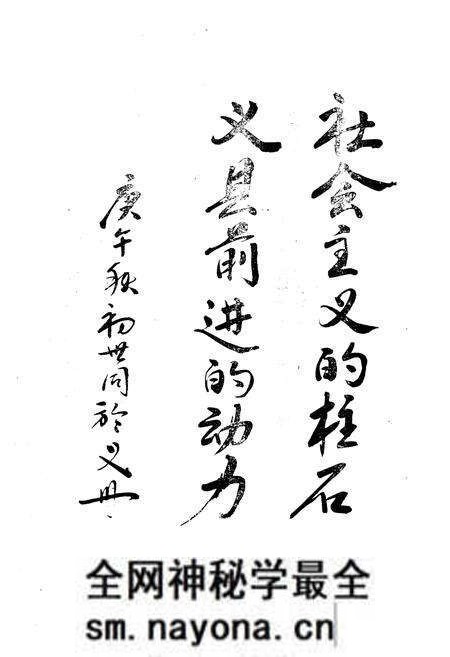 社会主义的柱石
义县前进的动力
庚午秋初世同於义州
全网神秘学最全
sm.nayona.cn